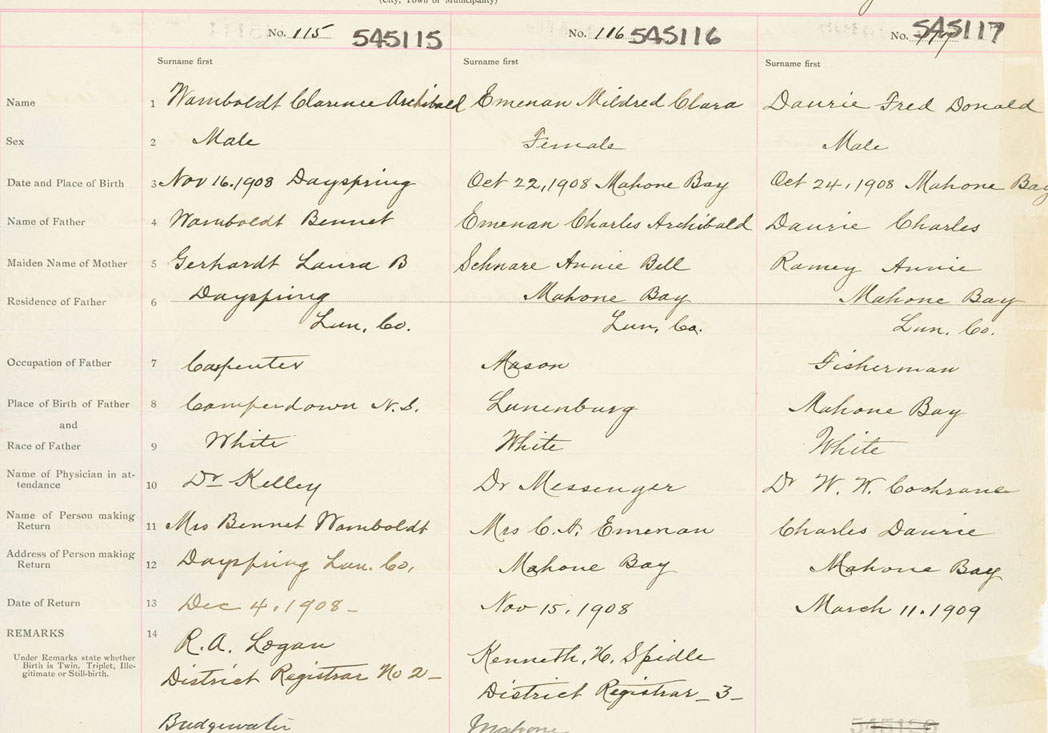 (City, Town or Municipality)
No. 115 545115 No. 116 545116 No. 117 545117
Surname first Surname first Surname first
Name 1 Wamboldt Clarence Archibald Emenan Mildred Clara Daurie Fred Donald
Sex 2 Male Female Male
Date and Place of Birth 3 Nov 16, 1908 Dayspring Oct 22, 1908 Mahone Bay Oct 24, 1908 Mahone Bay
Name of Father 4 Wamboldt Bennet Emenan Charles Archibald Daurie Charles
Maiden Name of Mother 5 Gerhardt Laura B Schnare Annie Bell Ramey Annie
Residence of Father 6 Dayspring Mahone Bay Mahone Bay
Lun. Co. Lun. Co. Lun. Co.
Occupation of Father 7 Carpenter Mason Fisherman
Place of Birth of Father 8 Camperdown N.S. Lunenburg Mahone Bay
and
Race of Father 9 White White White
Name of Physician in at-
tendance 10 Dr Kelley Dr Messenger Dr W. W. Cochrane
Name of Person making
Return 11 Mrs Bennet Wamboldt Mrs C. A. Emenan Charles Daurie
Address of Person making
Return 12 Dayspring Lun. Co, Mahone Bay Mahone Bay
Date of Return 13 Dec 4, 1908 Nov 15, 1908 March 11, 1909
REMARKS 14 R.A. Logan Kenneth, H. Spidle
Under Remarks state whether
Birth is Twin, Triplet, Ille-
gitimate or Still-birth.
District Registrar No 2 District Registrar 3
Bridgewater Mahone
545120